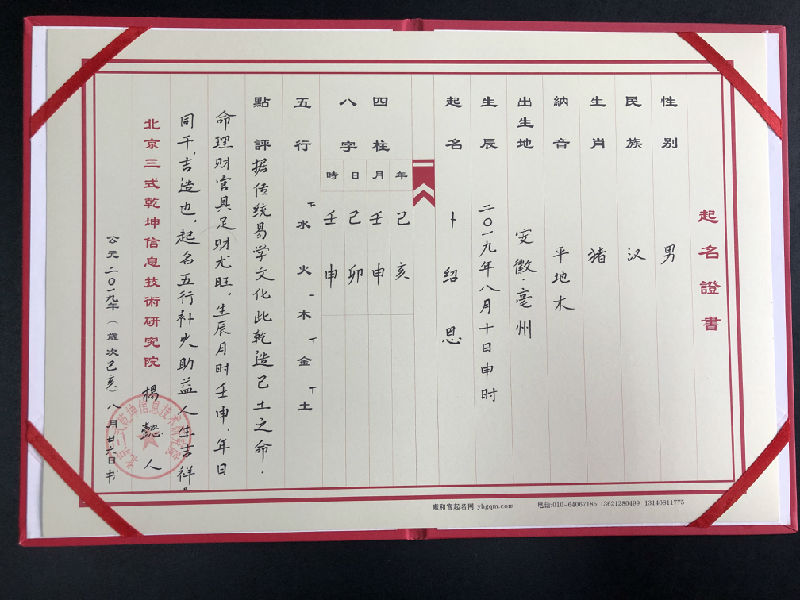 起名證書
性别 男
民族 汉
生肖 猪
納音 平地木
出生地 安徽·亳州
生辰 二〇一九年八月十日申时
起名 卜绍恩
四柱 年 月 日 時
八字 己亥 壬申 己卯 壬申
五行 水 火 木 金 土
點評 据传统易学文化此乾造己土之命.
命理财官具足财尤旺.生辰月时壬申.年日
同干.吉造也.起名五行补火助益人生吉祥。
北京三式乾坤信息技術研究院 楊懿人
公元二〇一九年(歲次己亥)八月廿六日书
雍和宫起名网 yhgqm.com
电话:010-64067185 13621280499